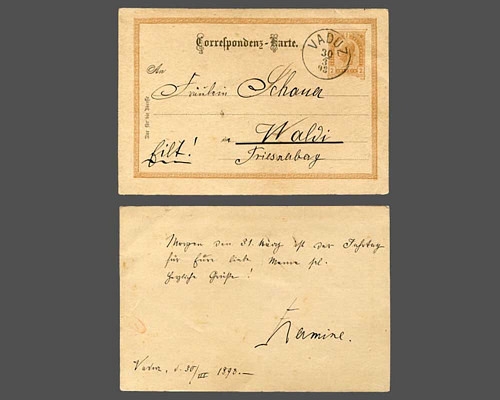 Correspondenz-Karte.
VADUZ
30
3
93
An
Fräulein Schauer
in Waldi
Eilt!
Nur für die Adresse
Morgen den 31. März ist der Jahrtag
für Eure liebe Mama sel.
Herzliche Grüße!
Hermine.
Vaduz, d. 30/III 1893.—